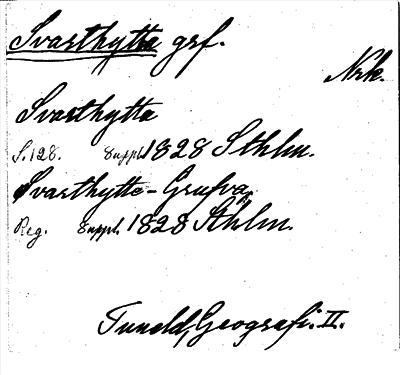 Svarthytta grf.
Nrk.
Svarthytta
S. 128. Suppl. 1828 Sthlm.
Svarthytte-Grufva,
Reg. Suppl. 1828 Sthlm.
Tuneld, Geografi. II.